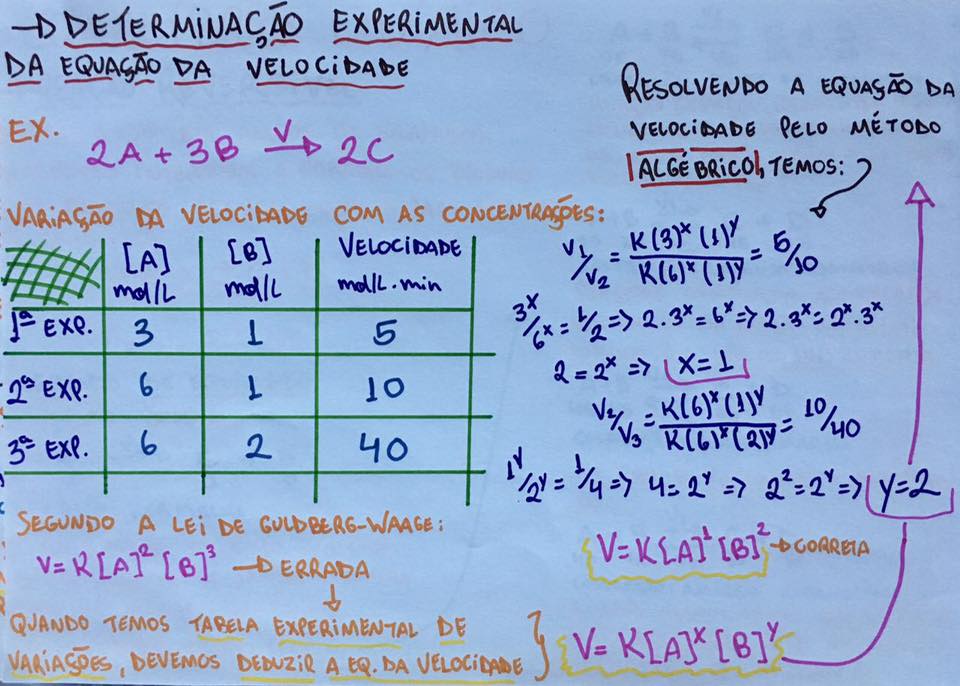 → DETERMINAÇÃO EXPERIMENTAL
DA EQUAÇÃO DA VELOCIDADE
EX.
2A + 3B →V 2C
VARIAÇÃO DA VELOCIDADE COM AS CONCENTRAÇÕES:
[A] mol/L [B] mol/L VELOCIDADE mol/L.min
1ª EXP. 3 1 5
2ª EXP. 6 1 10
3ª EXP. 6 2 40
SEGUNDO A LEI DE GULDBERG-WAAGE:
V=K[A]²[B]³ → ERRADA
↓
QUANDO TEMOS TABELA EXPERIMENTAL DE
VARIAÇÕES, DEVEMOS DEDUZIR A EQ. DA VELOCIDADE }
RESOLVENDO A EQUAÇÃO DA
VELOCIDADE PELO MÉTODO
|ALGÉBRICO|, TEMOS:
V1/V2 = K(3)ˣ(1)ʸ/K(6)ˣ(1)ʸ = 5/10
3ˣ/6ˣ = 1/2 => 2.3ˣ=6ˣ => 2.3ˣ=2ˣ.3ˣ
2=2ˣ => x=1
V2/V3 = K(6)ˣ(1)ʸ/K(6)ˣ(2)ʸ = 10/40
1ʸ/2ʸ = 1/4 => 4=2ʸ => 2²=2ʸ => y=2
V=K[A]¹[B]² → CORRETA
V=K[A]ˣ[B]ʸ